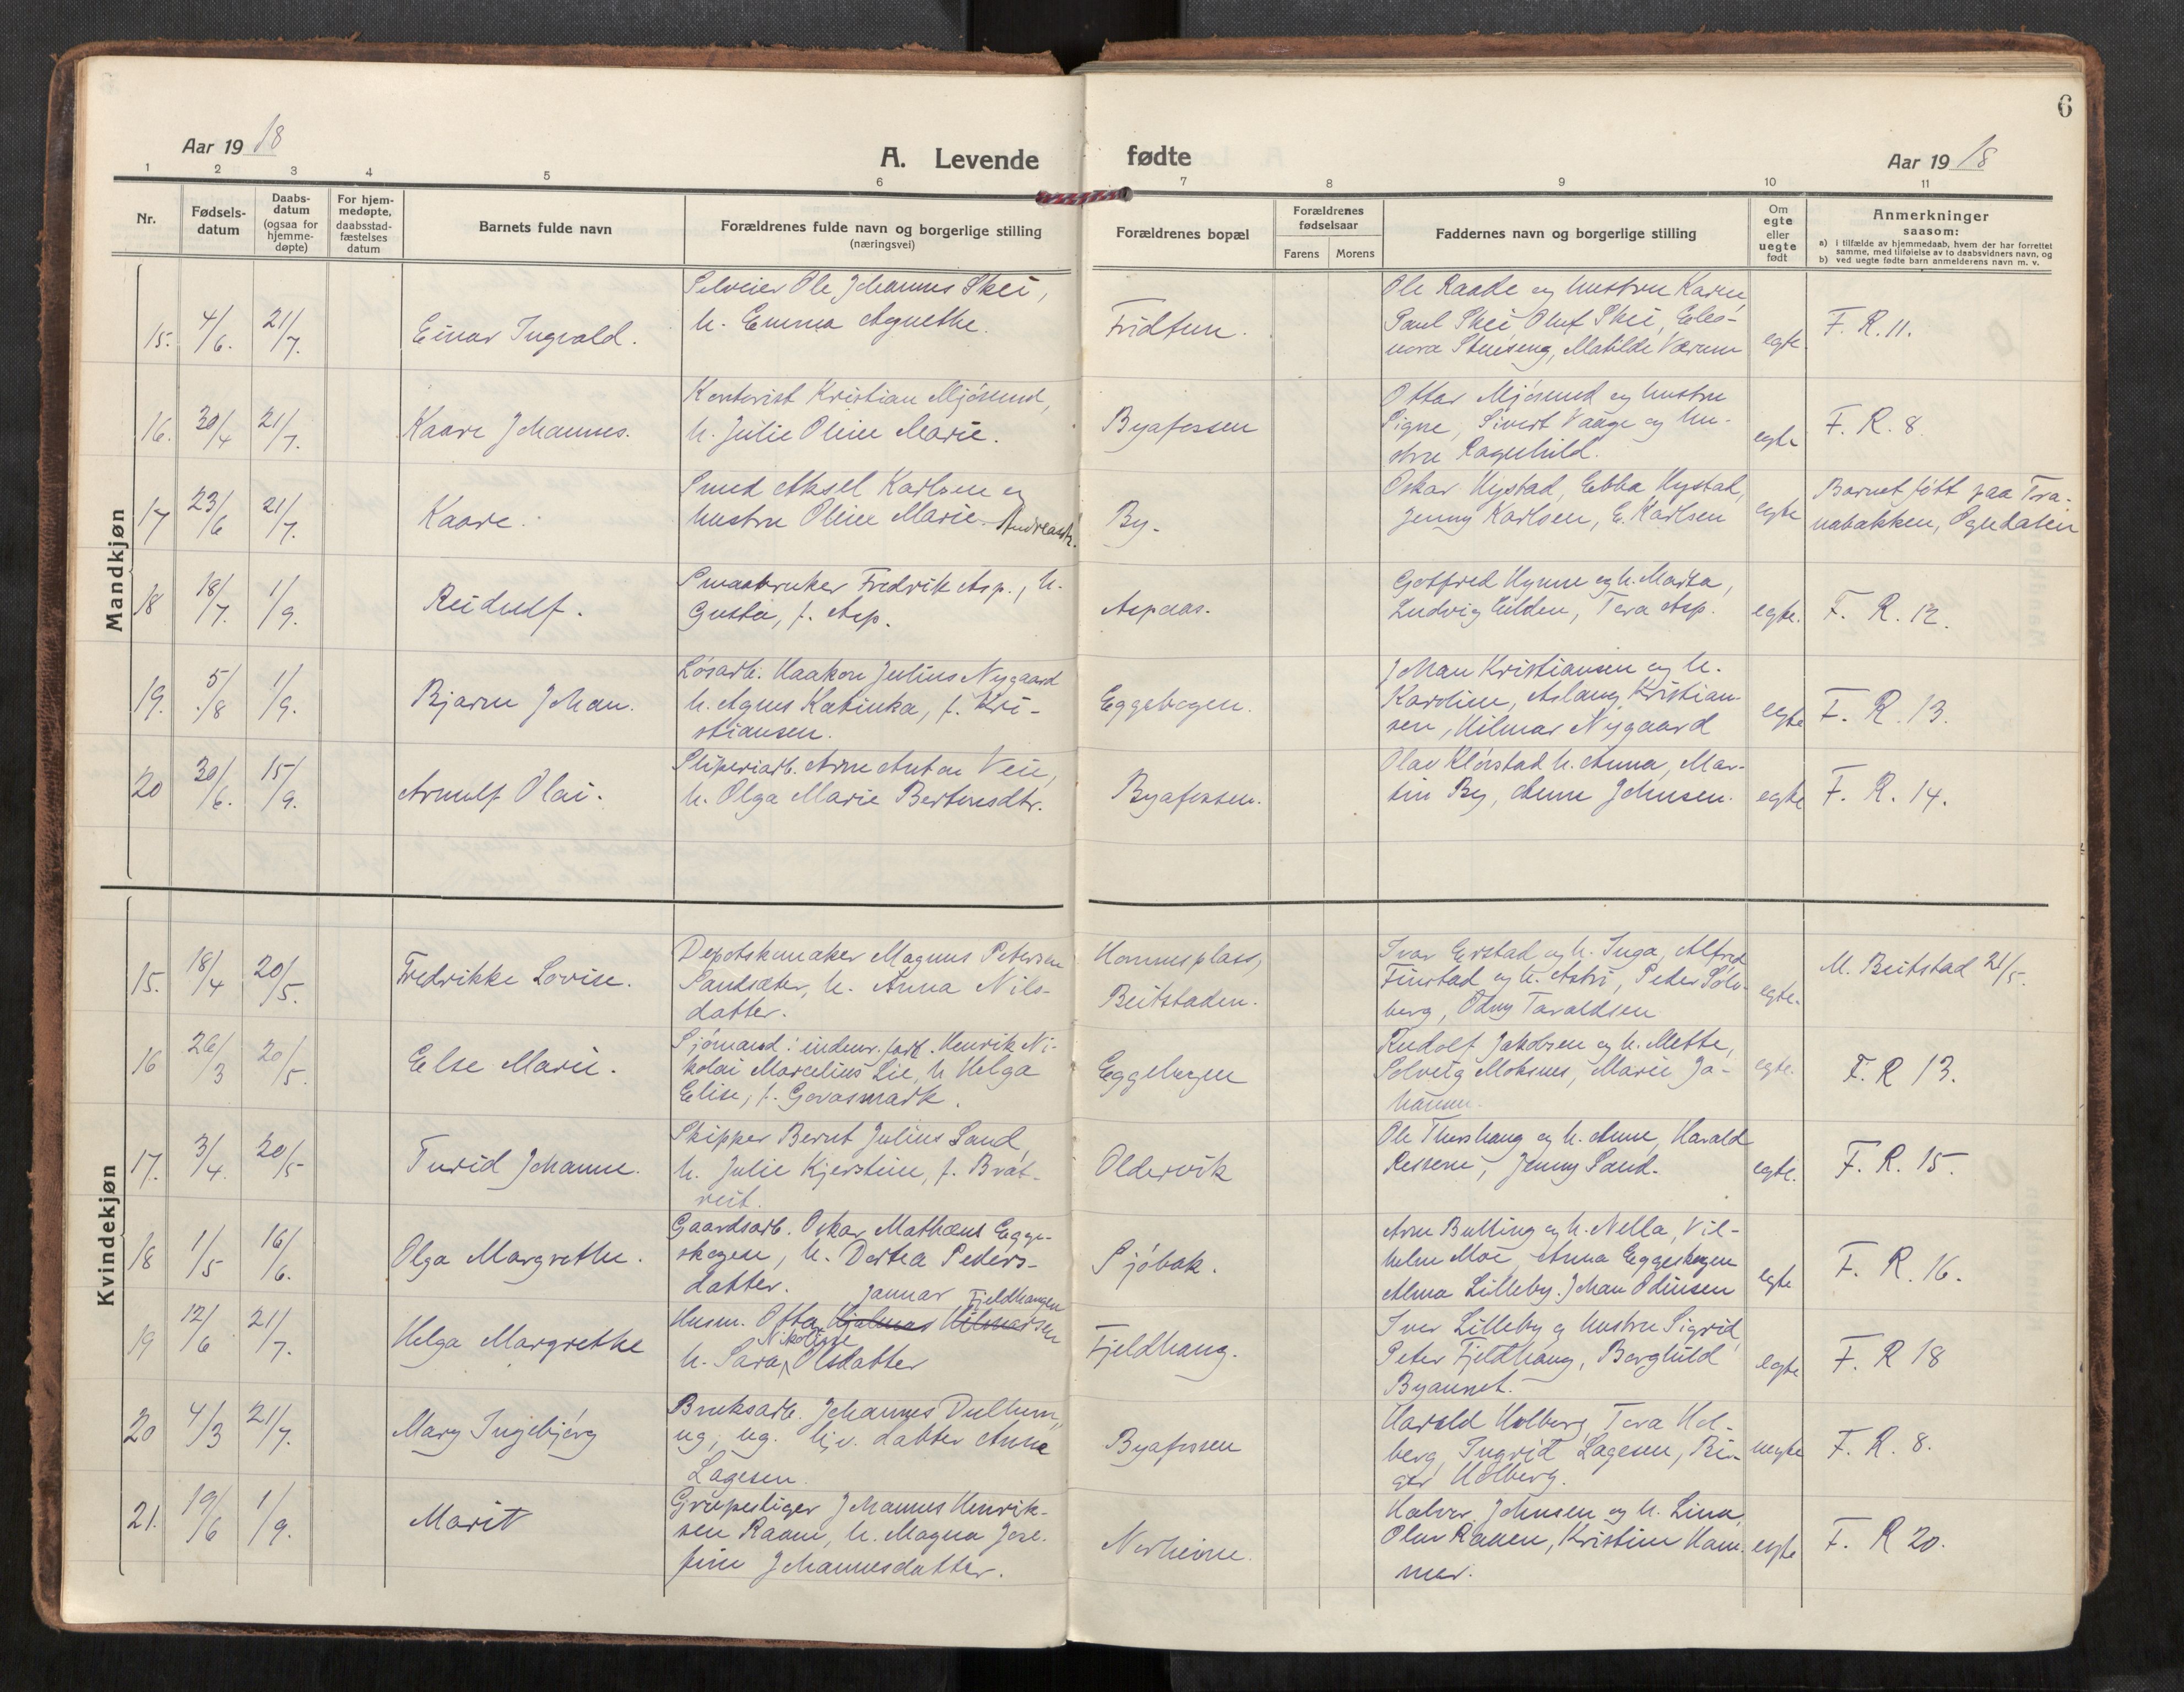 6
Aar 19 18
A. Levende fødte
Aar 19 18
1 2 3 4 5 6 7 8 9 10 11
Nr.
Fødsels-
datum
Daabs-
datum
(ogsaa for
hjemme-
døpte)
For hjem-
medøpte,
daabsstad-
fæstelses
datum
Barnets fulde navn
Forældrenes fulde navn og borgerlige stilling
(næringsvei)
Forældrenes bopæl
Forældrenes
fødselsaar
Farens Morens
Faddernes navn og borgerlige stilling
Om
egte
eller
uegte
født
Anmerkninger
saasom:
a) i tilfælde av hjemmedaab, hvem der har forrettet
samme, med tilføielse av to daabsvidners navn, og
b) ved uegte fødte barn anmelderens navn m. v.
Mandkjøn
15. 4/6. 21/7. Einar Ingvald.
Selveier Ole Johannes Skei,
h. Emma Agnethe.
Fridtun.
Ole Raade og hustru Karen,
Paul Skei, Oluf Skei, Eleo-
nora Stenseng, Matilde Værum
egte
F. R. 11.
16. 30/4 21/7. Kaare Johannes.
Kontorist Kristian Mjøsund,
h. Julie Oline Marie.
Byafossen
Ottar Mjøsund og hustru
Signe, Sivert Vaage og hu-
stru Ragnhild.
egte
F. R. 8.
17 23/6 21/7. Kaare.
Smed Aksel Karlsen og
hustru Oline Marie Andreasdtr.
By.
Oskar Hystad, Ebba Hystad,
Jenny Karlsen, E. Karlsen
egte
Barnet født paa Tra-
nabakken, Ogndalen
18 18/7. 1/9. Reidulf.
Smaabruker Fredrik Asp., h.
Gusta, f. Asp.
Aspaas.
Gotfred Hynne og h. Marta,
Ludvig Eilden, Tora Asp.
egte.
F. R. 12.
19. 5/8 1/9. Bjarne Johan.
Løsarb. Haakon Julius Nygaard
h. Agnes Katinka, f. Kri-
stiansen.
Eggebogen.
Johan Kristiansen og h.
Karoline, Aslaug Kristian-
sen, Hilmar Nygaard
egte
F. R. 13.
20 30/6. 15/9. Arnulf Olai.
Sliperiarb. Arne Anton Veie,
h. Olga Marie Bertinsdtr.
Byafossen.
Olav Klørstad h. Anna, Mar-
tin By, Anne Johnsen.
egte
F. R. 14.
Kvindekjøn
15. 18/4 20/5. Fredrikke Lovise.
Depotskomaker Magnus Petersen
Sandsæter, h. Anna Nils-
datter.
Homnesplass,
Beitstaden.
Ivar Erstad og h. Inga, Alfred
Finstad og h. Astri, Peder Sølv-
berg, Odny Taraldsen
egte.
M. Beitstad 21/5.
16 26/3 20/5. Else Marie.
Sjømand i indenr. fart. Henrik Ni-
kolai Marcelius Lie, h. Helga
Elise, f. Govasmark.
Eggebogen
Rudolf Jakobsen og h. Mette,
Solveig Moksnes, Marie Jo-
hansen.
egte.
F. R 13.
17. 3/4. 20/5 Turid Johanne.
Skipper Bernt Julius Sand,
h. Julie Kjerstine, f. Brat-
reit.
Oldervik
Ole Thorshaug og h. Anne, Harald
, Jenny Sand.
egte.
F. R. 15.
18 1/5 16/6. Olga Margrethe.
Gaardsarb. Oskar Mathæus Egge-
skogen, h. Dortea Peders-
datter.
Sjøbak.
Arne Bulling og h. Nella, Vil-
helm Moe, Anna Eggeskogen
Alma Lilleby. Johan Odinsen
egte
F. R. 16.
19 12/6 21/7. Helga Margrethe
Januar Fjeldhaugen
Husm. Otto Hjalmar Hilmarsen
Nikoline
h. Sara, Olsdatter
Fjeldhaug.
Iver Lilleby og hustru Sigrid,
Peter Fjeldhaug, Borghild
Byaunet.
egte
F. R 18
20 4/3 21/7. Mary Ingebjørg
Bruksarb. Johannes Dulhum,
ug, ug. hjv. datter Anna
Lagesen.
Byafossen
Harald Holberg, Tora Hol-
berg, Ingrid Lagesen, Bir-
ger Holberg.
uegte
F. R. 8.
21. 19/6 1/9. Marit
Grubestiger Johannes Henrik-
sen Raaen, h. Magna Jose-
fine Johannesdatter.
Norheim.
Halvor Johnsen og h. Lina,
Olav Raaen, Kristine Ham-
mer.
egte
F. R 20.